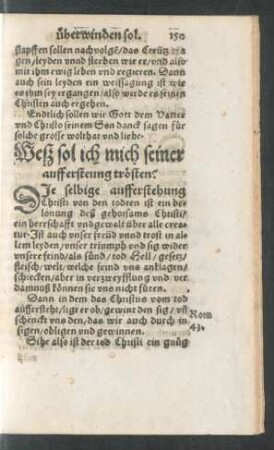 überwinden sol. 150
stapffen sollen nachvolgē/das Creütz tra
gen/leyden vnnd sterben wie er/vnd also
mit ihm ewig leben vnd regieren. Dann
auch sein leyden ein weissagung ist wie
es ihm sey ergangen/also werde es seinen
Christen auch ergehen.
Endtlich sollen wir Gott dem Vatter
vnd Christo seinem Son danck sagen für
solche grosse wolthat vnd liebe.
Weß sol ich mich seiner
aufferstehung trösten?
Die selbige aufferstehung
Christi von den todten ist ein be-
lonung deß gehorsams Christi/
ein herrschafft vnd gewalt über alle crea-
tur. Ist auch vnser freüd vnnd trost in al-
lem leyden/vnser triumph vnd sig wider
vnsere feind/als sünd/tod Hell/gesetz/
fleisch/welt/welche seind vns anklagen/
schrecken/aber in verzweyfflung vnd ver-
damnuß können sie vns nicht füren.
Dann in dem das Christus vom tod
aufferstehet/ligt er ob/gewint den sig/vñ
schenckt vns den/das wir auch durch in
sigen/obligen vnd gewinnen.
Rom
4.
Sihe also ist der tod Christi ein gnůg